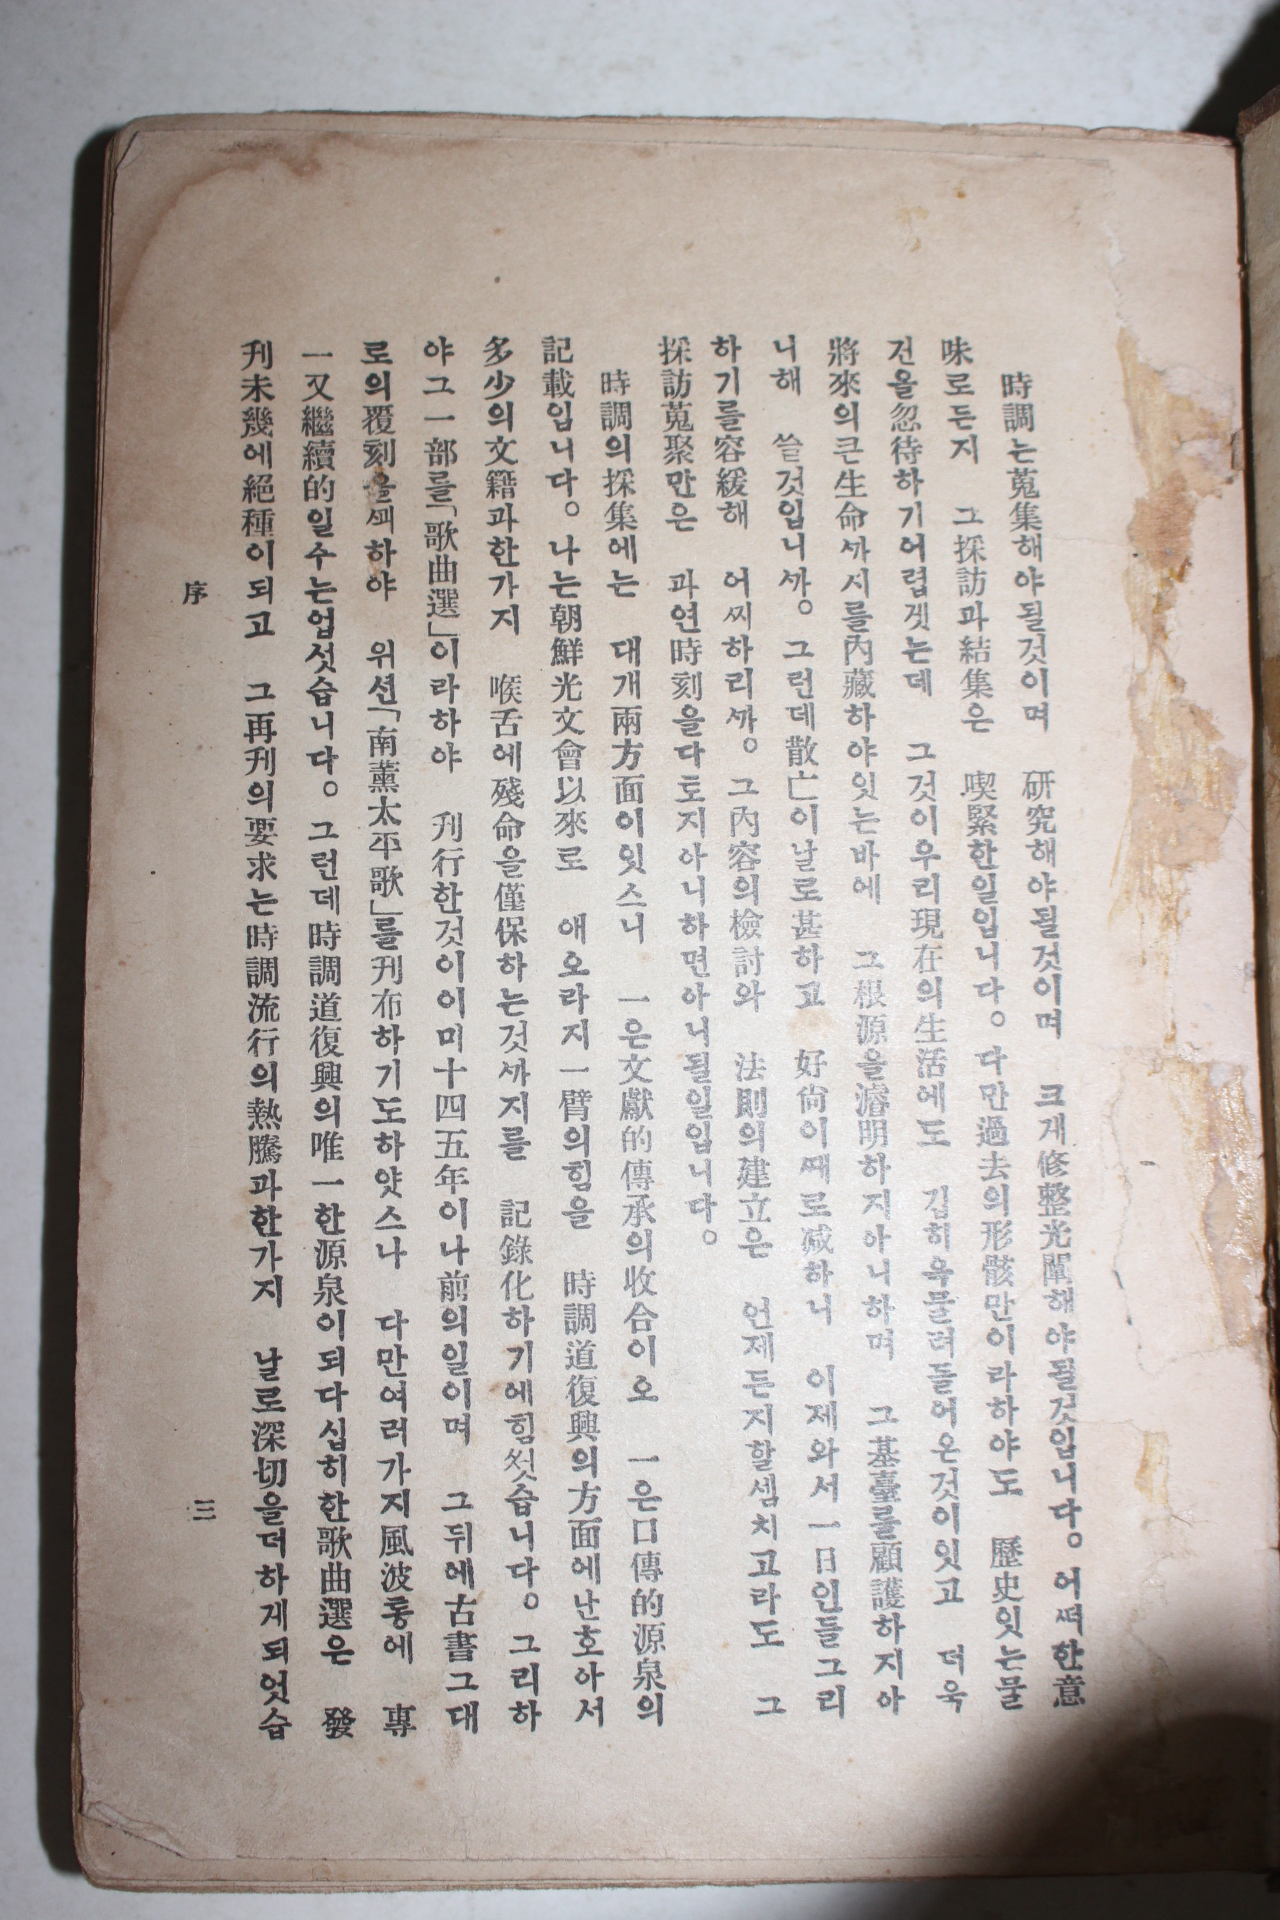 時調는蒐集해야될것이며 硏究해야될것이며 크게修整光闡해야될것입니다。어떠한意
味로든지 그採訪과結集은 喫緊한일입니다。다만過去의形骸만이라하야도 歷史잇는물
건을忽待하기어렵겟는데 그것이우리現在의生活에도 깁히욱물려들어온것이잇고 더욱
將來의큰生命ᄭᅡ지를內藏하야잇는바에 그根源을濬明하지아니하며 그基臺를顧護하지아
니해 쓸것입니ᄭᅡ。그런데散亡이날로甚하고 好尙이ᄯᅢ로减하니 이제와서一日인들그리
하기를容緩해 어찌하리ᄭᅡ。그內容의檢討와 法則의建立은 언제든지할셈치고라도 그
採訪蒐聚만은 과연時刻을다토지아니하면아니될일입니다。
時調의採集에는 대개兩方面이잇스니 一은文獻的傳承의收合이오 一은口傳的源泉의
記載입니다。나는朝鮮光文會以來로 애오라지一臂의힘을 時調道復興의方面에난호아서
多少의文籍과한가지 喉舌에殘命을僅保하는것ᄭᅡ지를 記錄化하기에힘썻습니다。그리하
야그一部를「歌曲選」이라하야 刊行한것이이미十四五年이나前의일이며 그뒤에古書그대
로의覆刻을ᄭᅬ하야 위션「南薰太平歌」를刊布하기도하얏스나 다만여러가지風波통에 專
一又繼續的일수는업섯습니다。그런데時調道復興의唯一한源泉이되다십히한歌曲選은 發
刊未幾에絕種이되고 그再刊의要求는時調流行의熱騰과한가지 날로深切을더하게되엇습
序
三